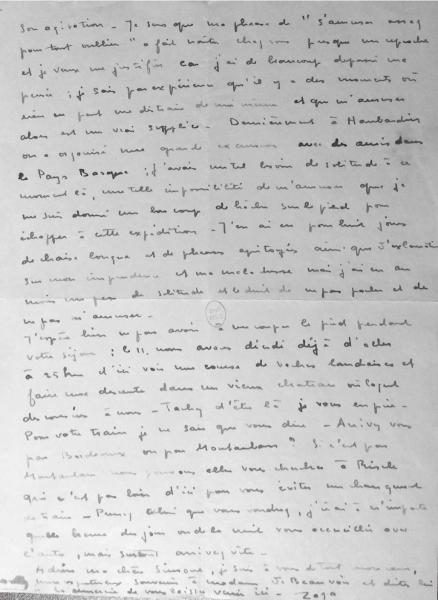 Son agitation - Je sens que ma phrase de "s'amuser assez
pour tout oublier" a fait naître chez vous presque un reproche
et je veux me justifier car j'ai de beaucoup dépassé ma
pensée ; je sais par expérience qu'il y a des moments où
rien ne peut me distraire de moi même et que m'amuser
alors est un vrai supplice - Dernièrement à Haubardin
on a organisé une grande excursion avec des amis dans
le Pays Basque ; j'avais un tel besoin de solitude à ce
moment là, une telle impossibilité de m'amuser que je
me suis donné un bon coup de hache sur le pied pour
échapper à cette expédition - J'en ai eu pour huit jours
de chaise longue et de phrases apitoyées ainsi que d'exclamations
sur mon imprudence et ma maladresse mais j'ai eu au
moins un peu de solitude et le droit de ne pas parler et de
ne pas m'amuser -
J'espère bien ne pas avoir à me couper le pied pendant
votre séjour ; le 11, nous avons décidé déjà d'aller
à 25 km d'ici voir une course de vaches landaises et
faire une descente dans un vieux château où logent
des cousins à nous - Tachez d'être là je vous en prie -
Pour votre train je ne sais que vous dire - Arrivez vous
par Bordeaux ou par Montauban ? Si c'est par
Montauban nous pouvons aller vous chercher à Riscle
qui n'est pas loin d'ici pour vous éviter un changement
de train - Prenez celui que vous voudrez, j'irai à n'importe
quelle heure du jour ou de la nuit vous accueillir avec
l'auto, mais surtout arrivez vite -
Adieu ma chère Simone, je suis à vous de tout mon cœur,
mon respectueux souvenir à madame de Beauvoir et dites lui
de vous laisser venir ici - Zaza